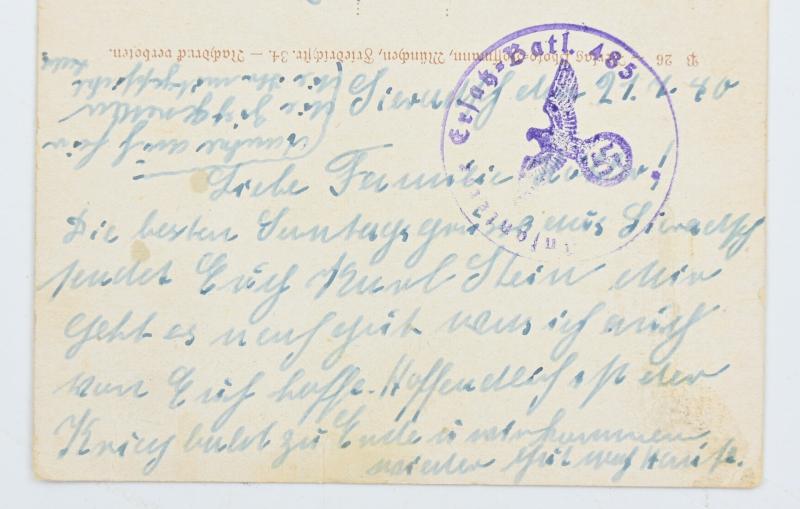 P 26 Verlag Photo-Hoffmann, München, Friedrichstr. 34. — Nachdruck verboten.
Infanterie Ersatz-Batl. 485
den 21. 1. 40
Liebe Familie
Die besten Sonntagsgrüße aus Sieradsch
sendet Euch Karl Stein Mir
Geht es noch Gut was ich auch
von Euch hoffe. Hoffendlich ist der
Krieg bald zu Ende u wir kommen
wieder Gut nach Hause.